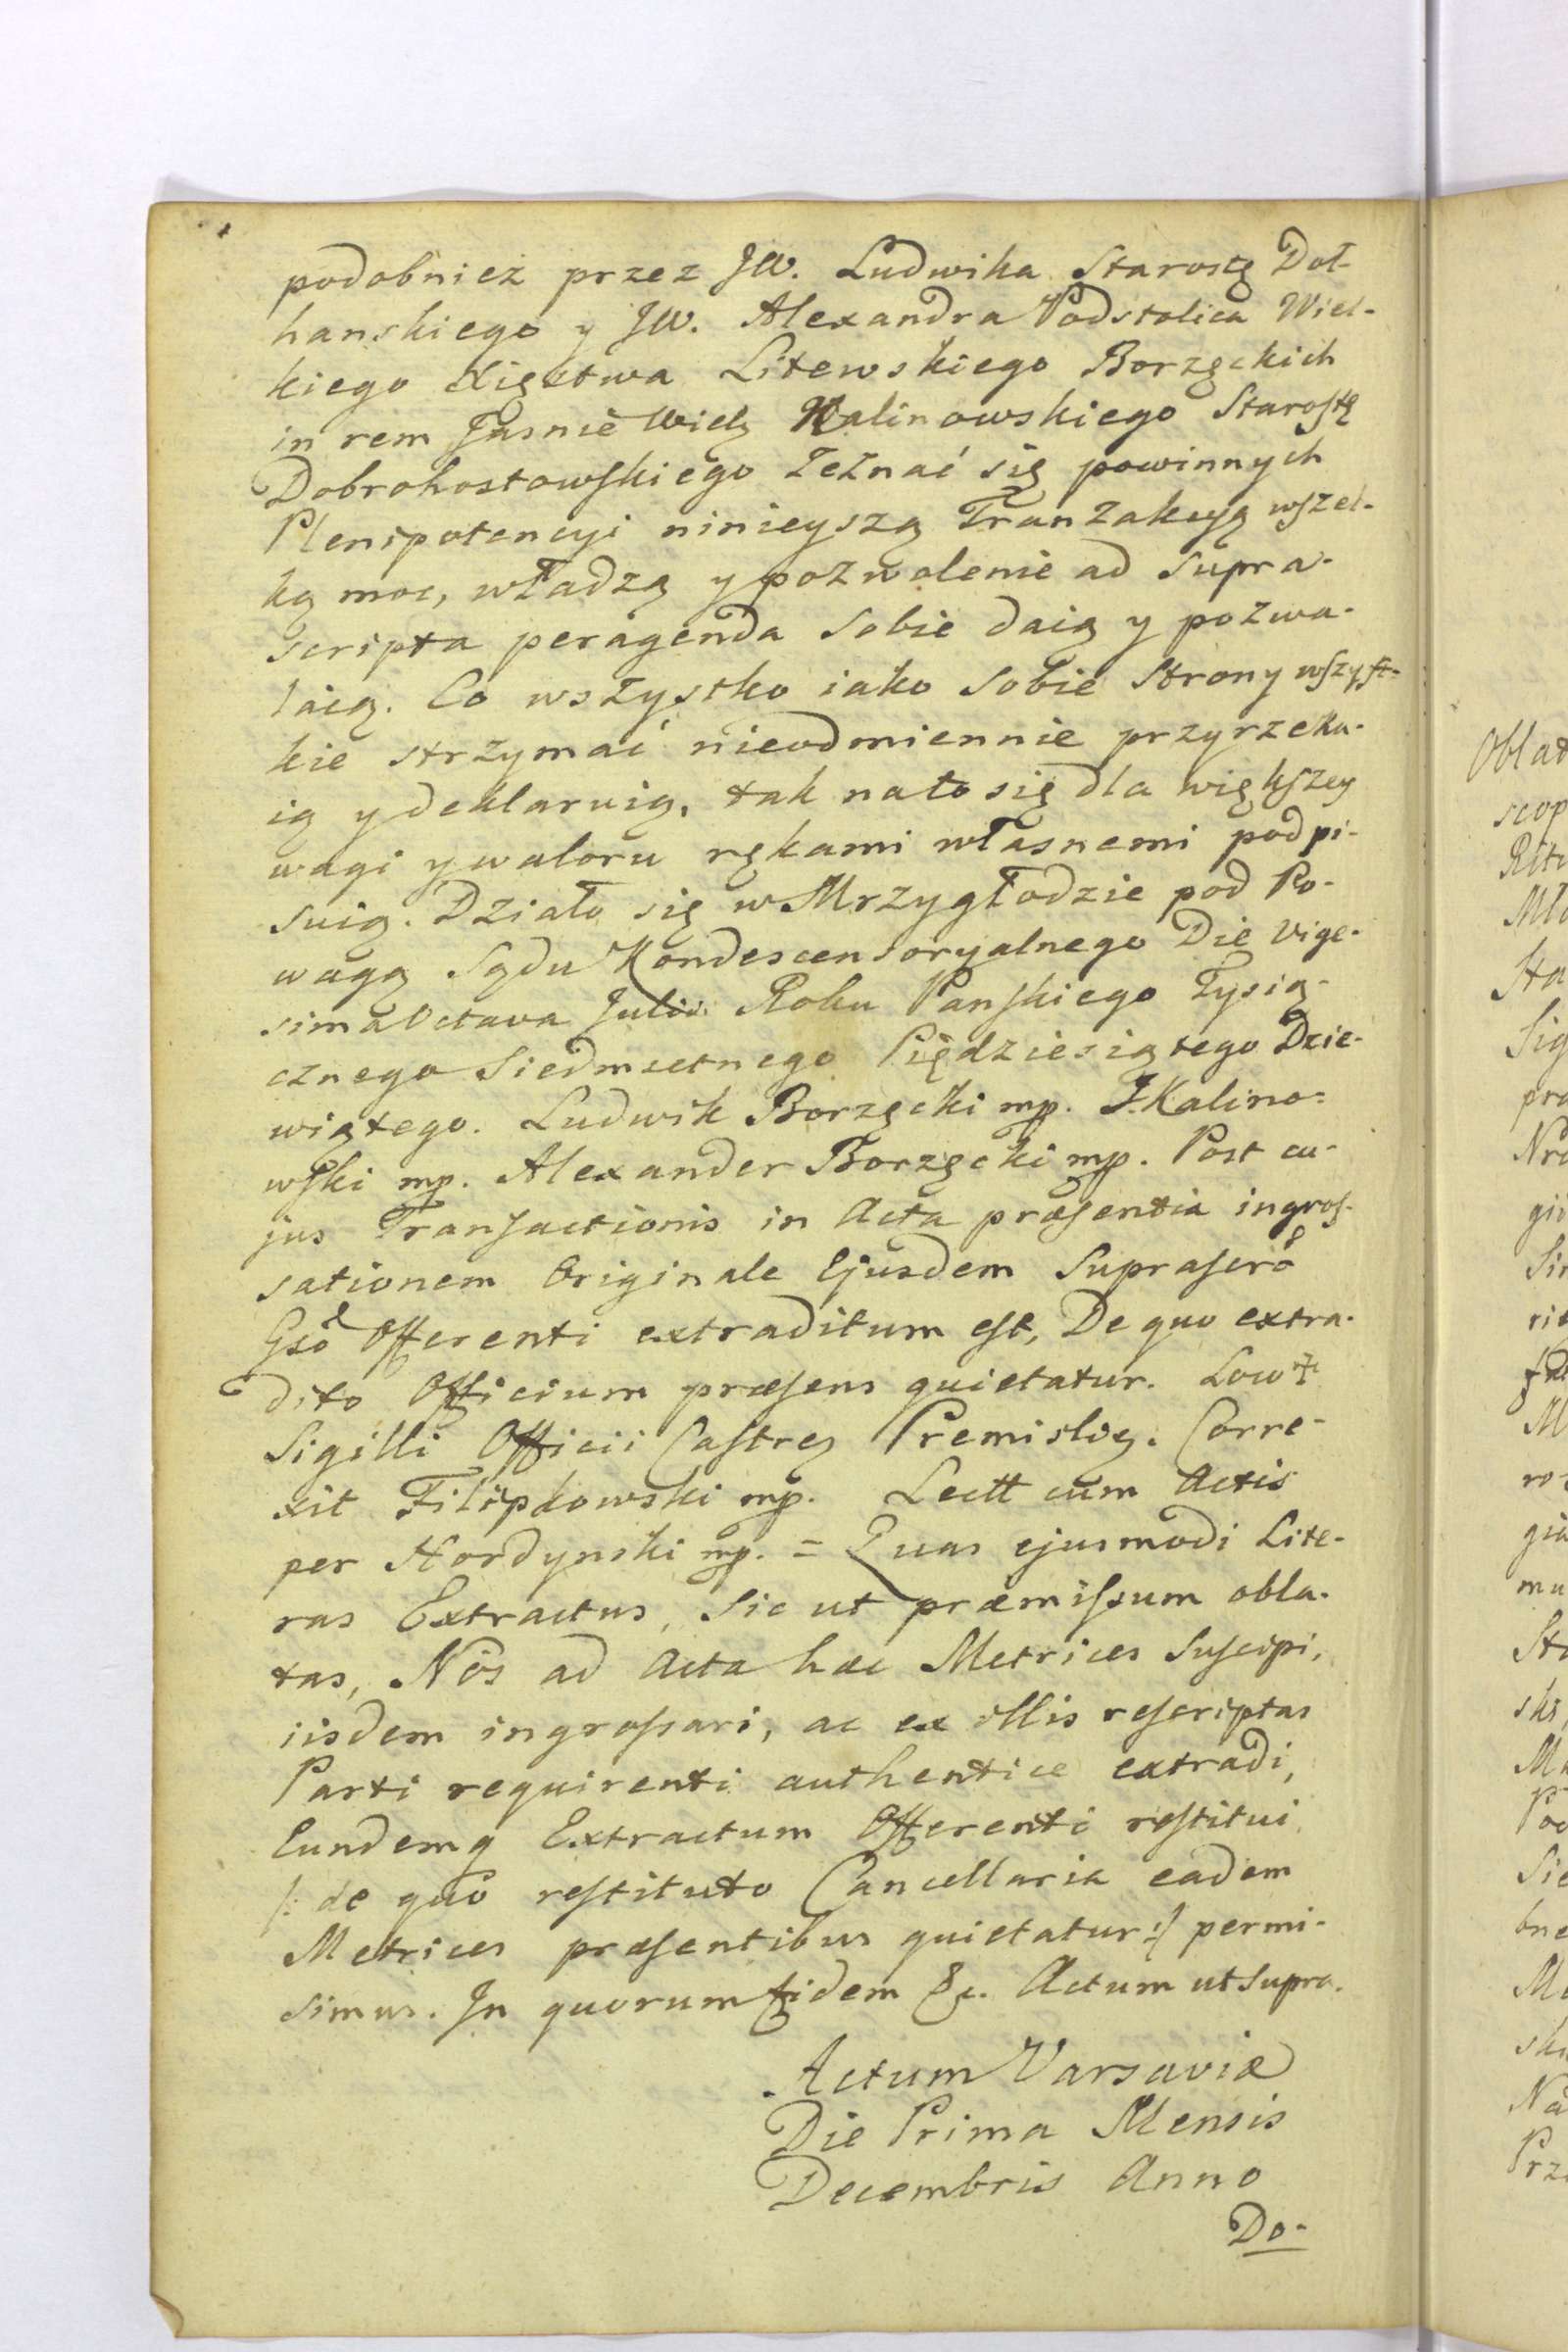 podobnież przez JW. Ludwika Starostę Doł-
hanskiego y JW. Alexandra Podstolica Wiel-
kiego Xięstwa Litewskiego Borzęckich
in rem Jasnie Wielg Kalinowskiego Starostę
Dobrohostowskiego zeznać się powinnych
Plenipotencyi ninieyszą Tranzakcyą wszel-
ką moc, władzą y pozwolenie ad supra-
scripta peragenda sobie daią y pozwa-
laią. Co wszystko iako sobie strony wszyst-
kie strzymać nieodmiennie przyrzeka-
ią y deklaruią, tak na to się dla większey
wagi y waloru rękami własnemi podpi-
suią. Działo się w Mrzygłodzie pod Po-
wagą Sądu Kondescensoryalnego Die vige-
sima Octava Julii Roku Panskiego Tysią-
cznego Siedmsetnego Piędziesiątego Dzie-
wiątego. Ludwik Borzęcki mp. J. Kalino-
wski mp. Alexander Borzęcki mp. Post cu-
jus Transactionis in Acta præsentia ingros-
sationem Originale Ejusdem Suprascro
Gso Offerenti extraditum est, De quo extra-
dito Officium præsens quietatur. Low
Sigilli Officii Castreg Premislieg. Corre-
xit Filipkowski mp. Lectt cum Actis
per Hordynski mp. = Quas ejusmodi Lite-
ras Extractus, sic ut præmissum obla-
tas, Nos ad Acta hæc Metrices Suscipi,
iisdem ingrossari, ac ex illis rescriptas
Parti requirenti authentice extradi,
Eundemq Extractum Offerenti restitui
/: de quo restituto Cancellaria eadem
Metrices præsentibus quietatur :/ permi-
simus. In quorum fidem &c. Actum ut supra.
Actum Varsaviæ
Die Prima Mensis
Decembris Anno
Do-
Oblat
scop
Sig
pro
M
mu
ski
M
bne
Prz